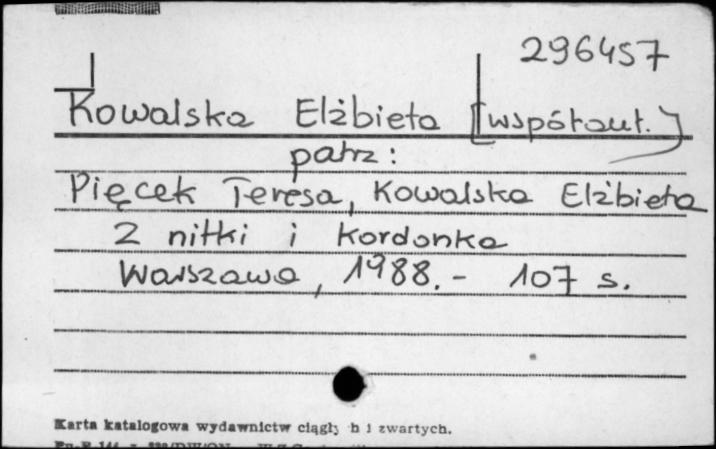 296457
Kowalska Elżbieta [współaut.]
patrz:
Pięcek Teresa, Kowalska Elżbieta
Z nitki i kordonka
Warszawa, 1988.- 107 s.
Karta katalogowa wydawnictw ciągły h i zwartych.